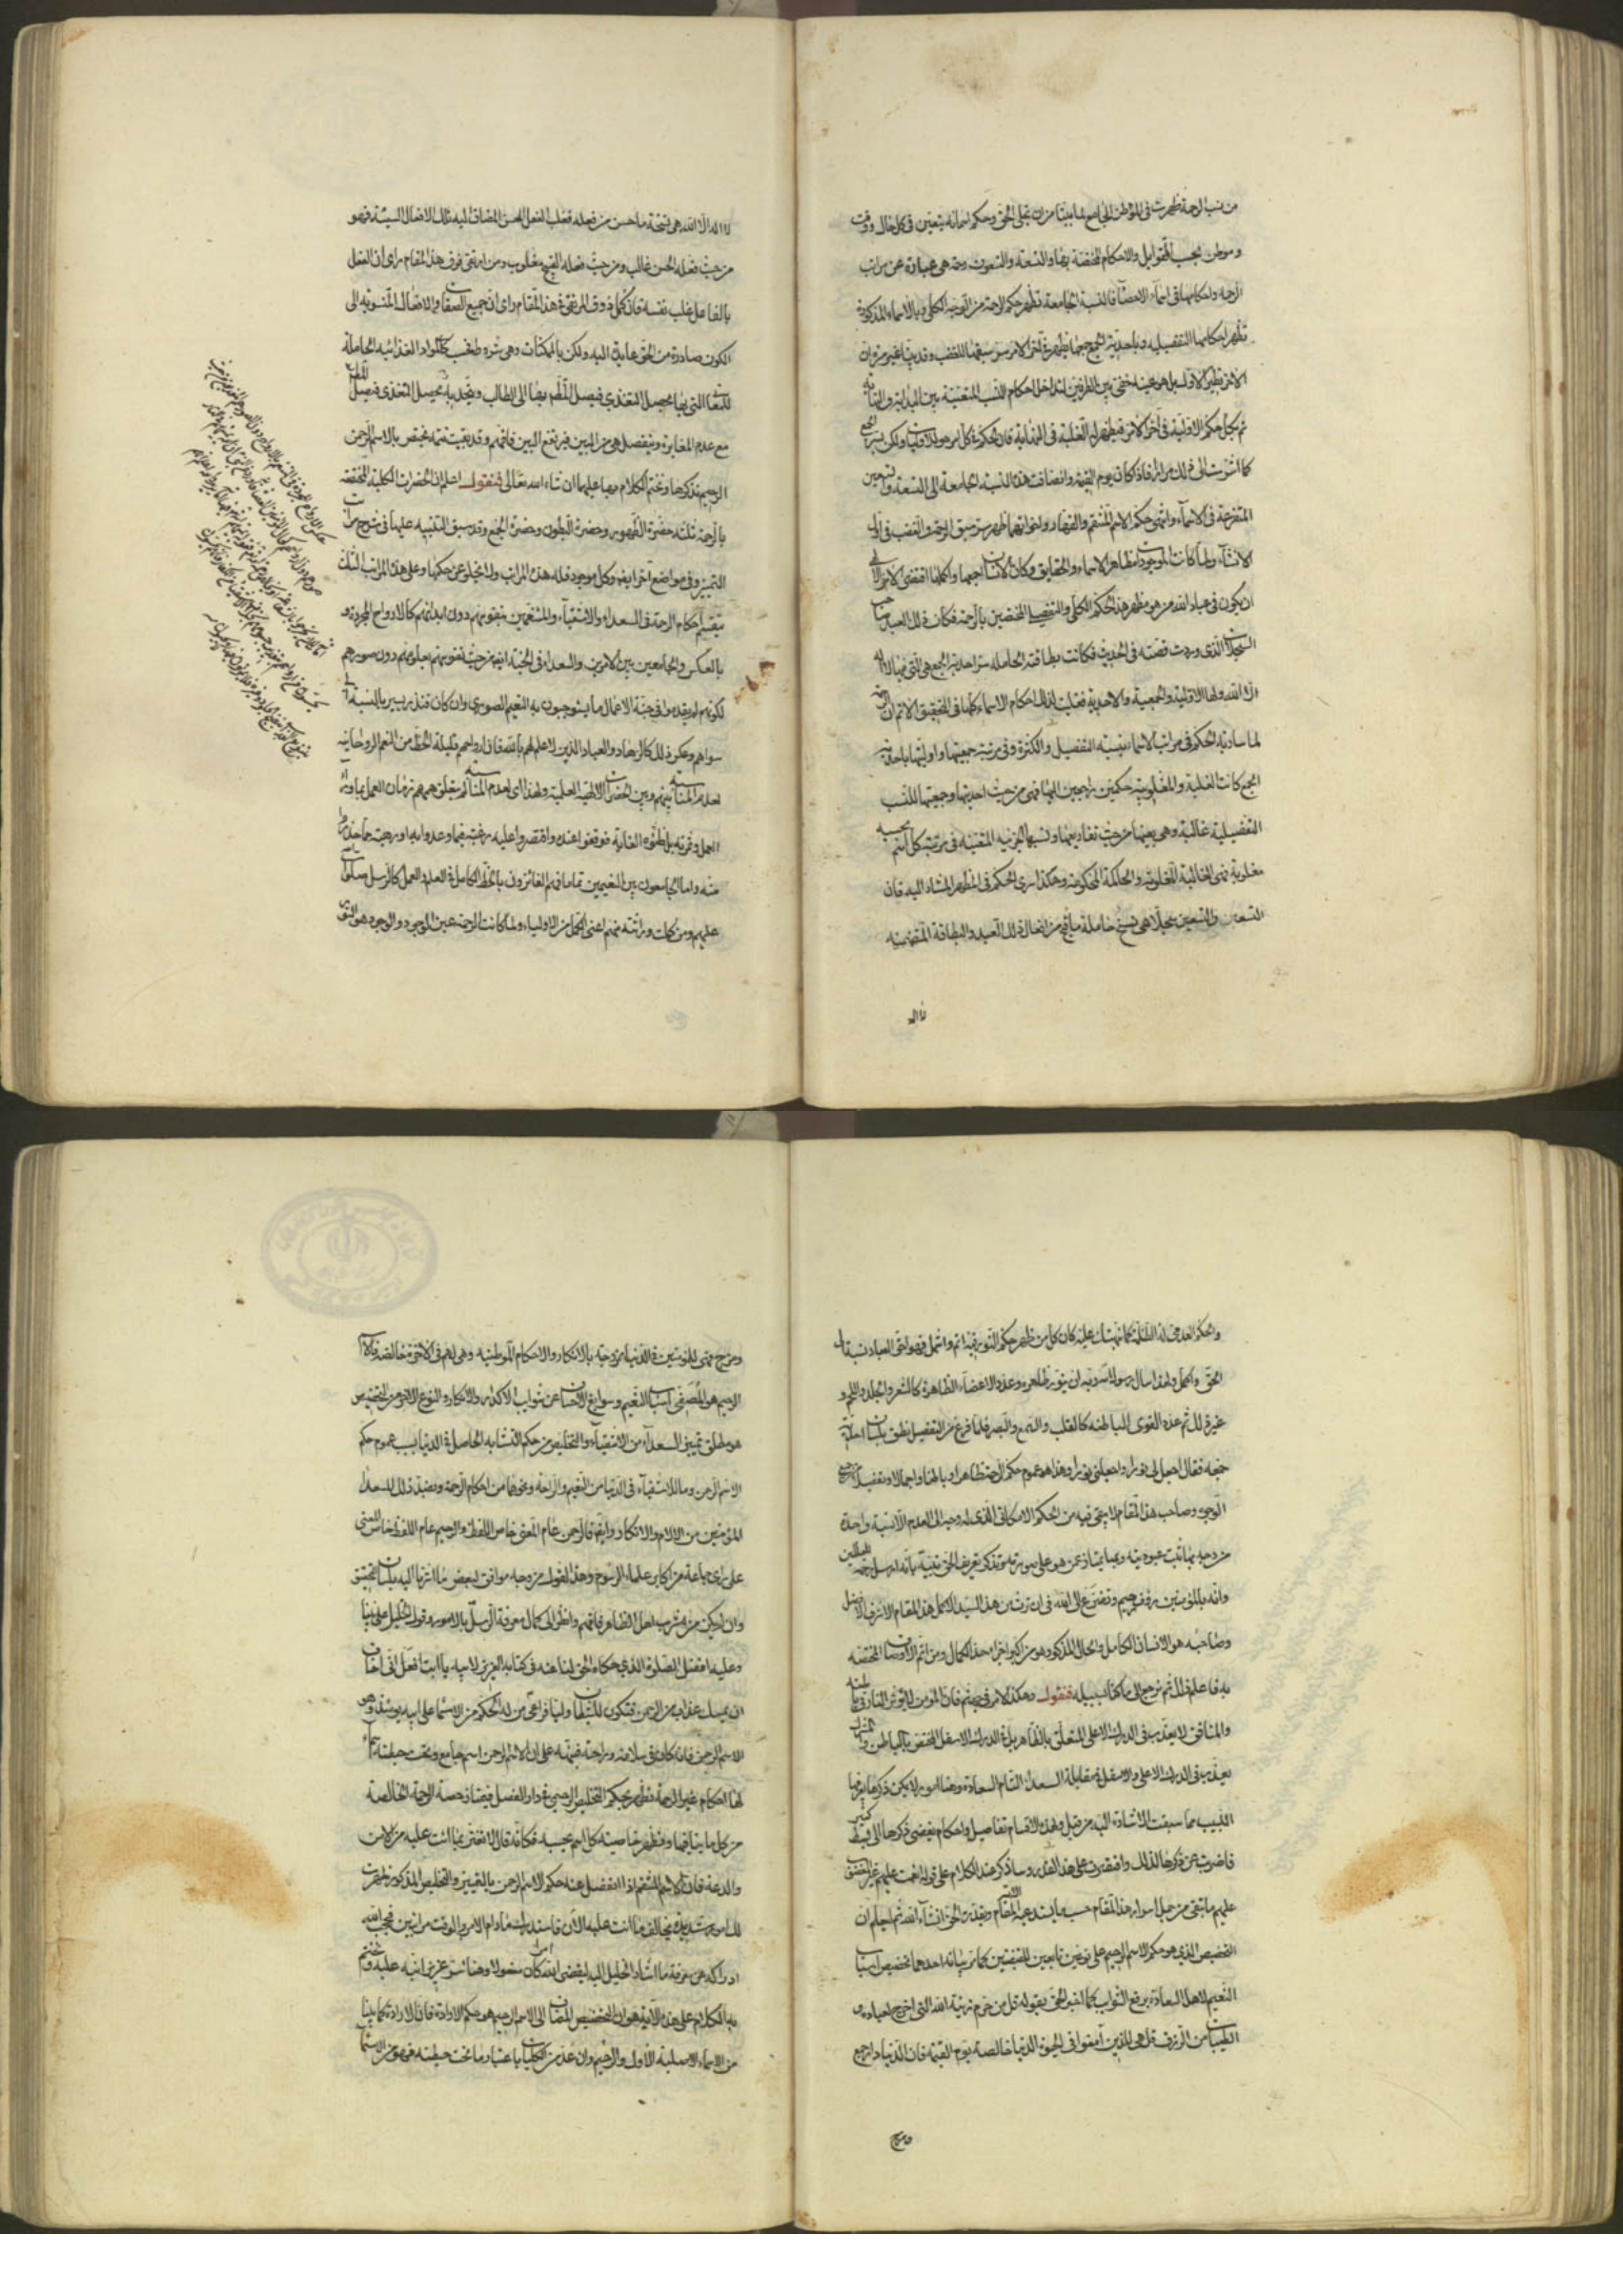 من نسب الرحمة ظهرت في الموطن الجامع لما بينا من ان تجلى الحق وحكم اسمائه يتعين في كل حال ووقت
وموطن بحسب القوابل والاحكام المختصة بها والتسعة والتسعون رحمة هي عبارة عن مراتب
الرحمة واحكامها في اسماء الاحصاء فالنسبة الجامعة تظهر حكم الرحمة من الوجه الكلي وبالاسماء المذكورة
تظهر احكامها التفصيلية وباحدية الجمع جميعا يظهر في آخر الامر سر سبقها للغضب وقد بينا غير مرة ان
الآخر نظير الاول بل هو عينه خفي بين الطرفين لتداخل احكام النسب المتعينة بين البداية والنهاية
ثم يكمل حكم الاولية في آخر الامر فيظهر له الغلبة في النهاية فان الحكم في كل امر هو للاوليات ولكن بسر الجمع
كما اشرت الى ذلك مرارا فاذا كان يوم القيمة وانضافت هذه النسبة الجامعة الى التسعة والتسعين
المتفرعة في الاسماء وانتهى حكم الاسم المنتقم والقهار واخواتهما ظهر سر سبق الرحمة الغضب في اول
الانشاء ولما كانت الموجودات مظاهر الاسماء والحقايق وكان الانسان اجمعها واكملها اقتضى الامر الالهي
ان يكون في عباد الله من هو مظهر هذا الحكم الكلي والتفصيل المختصين بالرحمة فكان ذلك العبد صاحب
السجلات الذي وردت قصته في الحديث فكانت بطاقته الحاملة سر احدية الجمع هي التي فيها لا اله
الا الله ولها الاولية والجمعية والاحدية فغلبت لذلك احكام الاسماء كلها في التحقيق الاتم ان الرحمة
لما سادت به الحكم في مراتب الاسماء بنسبة التفصيل والكثرة وفي رتبة جمعيتها واوليتها باحدية
الجمع كانت الغلبة والمغلوبية حكمين راجعين اليها فهي من حيث احديتها وجمعيتها للنسب
التفصيلية غالبة وهي بعينها من حيث تفاريعها ونسبها الجزئية المتعينة في مرتبة كل اسم بحسبه
مغلوبة فهي الغالبة المغلوبة والحاكمة المحكومة وهكذا سرى الحكم في المظهر المشار اليه فان
التسعة والتسعين سجلا هي نسخ حاملة ما قبح من افعال ذلك العبد والبطاقة المتضمنة
لا اله
لا اله الا الله هي نسخة ما حسن من فعله فغلب الفعل الحسن المضاف اليه تلك الافعال السيئة فهو
من حيث فعله الحسن غالب ومن حيث فعله القبيح مغلوب ومن ارتقى فوق هذا المقام راى ان الفعل
بالفاعل غلب نفسه فان كمل ذوق المرتقي في هذا المقام راى ان جميع الصفات والافعال المنسوبة الى
الكون صادرة من الحق عايدة اليه ولكن بالممكنات وهي شروط فحسب كالمواد الغذائية الحاملة
للمعاني التي بها يحصل التغذي فيصل المطعم بها الى الطالب ويتحد به تحصيل التغذي فيصل المطعم
مع عدم المغايرة وينفصل هي من البين فيرتفع البين فافهم وقد بقيت تتمة تختص بالاسم الرحمن
الرحيم نذكرها ونختم الكلام بها عليهما ان شاء الله تعالى فنقول اعلم ان الحضرات الكلية المختصة
بالرحمة ثلثة حضرة الظهور وحضرة البطون وحضرة الجمع وقد سبق التنبيه عليها في شرح مراتب
التمييز وفي مواضع اخر ايضا وكل موجود فله هذه المراتب ولا يخلو عن حكمها وعلى هذه المراتب الثلث
تنقسم احكام الرحمة في السعداء والاشقياء والمتنعمين بنفوسهم دون ابدانهم كالارواح المجردة و
بالعكس والجامعين بين الامرين والسعداء في الجنة ايضا من حيث نفوسهم بعلومهم دون صورهم
لكونهم لم يقدموا في جنة الاعمال ما يستوجبون به النعيم الصوري وان كان فنزر يسير بالنسبة الى
سواهم وعكس ذلك كالزهاد والعباد الذين لا علم لهم بالله فان ارواحهم قليلة الحظ من النعيم الروحاني
لعدم المناسبة بينهم وبين الحضرات الالهية العلمية ولهذا اي لعدم المناسبة لم يتعلق هممهم زمان العمل بما وراء
العمل وثمرته بل ظنوه الغاية فوقفوا عنده واقتصروا عليه رغبة فيما وعدوا به او رهبة مما حذروا
منه واما الجامعون بين النعيمين تماما فهم الفائزون بالحظ الكامل في العلم والعمل كالرسل صلوات الله
عليهم ومن كملت وراثته منهم اعني الكمل من الاولياء ولما كانت الرحمة عين الوجود والوجود هو النور
والحكم العدمي له الظلمة كما نبهتك عليه كان كل من ظهر حكم النور فيه اتم واشمل فهو احق العباد نسبة الى
الحق واكمل ولهذا سال رسول الله ربه ان ينور ظاهره وعدد الاعضاء الظاهرة كالشعر والجلد واللحم و
غير ذلك ثم عدد القوى الباطنة كالقلب والسمع والبصر فلما فرغ من التفصيل نطق بلسان احدية
جمعه فقال اجعل لي نورا واجعلني نورا وهذا هو عموم حكم الرحمة ظاهرا وباطنا واجمالا وتفصيلا من جميع
الوجوه وصاحب هذا المقام لا يبقى فيه من الحكم الامكاني الذي له وجه الى العدم الا نسبة واحدة
من وجه بها تثبت عبوديته وبها يمتاز عمن هو على صورته وتذكر تعريف الحق نبيه بانه ارسل رحمة للعالمين
وانه بالمؤمنين رؤف رحيم وتضرع الى الله في ان ترث من هذا السيد الاكمل هذا المقام الاشرف الافضل
وصاحبه هو الانسان الكامل والحال المذكور هو من اكبر اجزاء حد الكمال ومن اتم الاوصاف المختصة
به فاعلم ذلك ثم نرجع الى ما كنا بسبيله فنقول وهكذا الامر في جهنم فان المؤمن لا تؤثر النار في باطنه
والمنافق لا يعذب في الدرك الاعلى المتعلق بالظاهر بل في الدرك الاسفل المختص بالباطن والمشرك
يعذب في الدرك الاعلى والاسفل في مقابلة السعداء التام السعادة وهنا امور لا يمكن ذكرها يعرفها
اللبيب مما سبقت الاشارة اليه من قبل ولهذه الاقسام تفاصيل واحكام يفضي ذكرها الى بسط كثير
فاضربت عن ذكرها لذلك واقتصرت على هذا القدر وساذكر عند الكلام على قوله انعمت عليهم غير المغضوب
عليهم ما تبقى من جمل اسرار هذا المقام حسب ما يستدعيه المقام ويقدره الحق ان شاء الله ثم اعلم ان
التخصيص الذي هو حكم الاسم الرحيم على نوعين تابعين للقبضتين كما مر بيانه احدهما تخصيص اسباب
النعيم لاهل السعادة برفع الشوائب كما اخبر الحق بقوله قل من حرم زينة الله التي اخرج لعباده و
الطيبات من الرزق قل هي للذين آمنوا في الحيوة الدنيا خالصة يوم القيمة فان الدنيا دار جمع
ومزج
ومزج فهي للمؤمنين في الدنيا ممزوجة بالانكاد والاحكام الموطنية وهي لهم في الآخرة خالصة فالاسم
الرحيم هو المصفي اسباب النعيم وسوابغ الاحسان عن شوائب الاكدار والانكاد والنوع الآخر من التخصيص
هو مطلق تمييز السعداء من الاشقياء والتخليص من حكم التشابه الحاصل في الدنيا بسبب عموم حكم
الاسم الرحمن وما للاشقياء في الدنيا من النعيم والراحة ونحوهما من احكام الرحمة وضد ذلك للسعداء
المؤمنين من الآلام والانكاد وايضا فالرحمن عام المعنى خاص اللفظ والرحيم عام اللفظ خاص المعنى
على راي جماعة من اكابر علماء الرسوم وهذا القول من وجه موافق لبعض ما اشرنا اليه بلسان التحقيق
وان لم يكن من مشرب اهل الظاهر فافهم وانظر الى كمال معرفة الرسل بالامور وقول الخليل على نبينا
وعليه افضل الصلوة الذي حكاه الحق لنا عنه في كتابه العزيز لابيه يا ابت انى اخاف
ان يمسك عذاب من الرحمن فتكون للشيطان وليا فراعى من له الحكم من الاسماء على ابيه يومئذ وهو
الاسم الرحمن فانه كان في سلامة وراحة فنبهه على ان الاسم الرحمن اسم جامع وتحت حيطته اسماء
لها احكام غير الرحمة تظهر بحكم التخليص الرحيمي في دار الفصل فيمتاز حصة الرحمة الخالصة
من كل ما ينافيها وتظهر خاصية كل اسم بحسبه فكانه قال لا تغتر بما انت عليه من الامن
والدعة فان الاسم المنتقم اذا انفصل عنه حكم الاسم الرحمن بالتمييز والتخليص المذكور ظهرت
لك امور شديدة تخالف ما انت عليه الآن فاستدرك ما دام الامر والوقت مرافقين فحجب الله
ادراكه عن معرفة ما اشار الخليل اليه ليقضي الله امرا كان مفعولا وهنا سر عزيز انبه عليه واختم
به الكلام على هذه الآية وهو ان التخصيص المضاف الى الاسم الرحيم هو حكم الارادة فان الارادة كما بينا
من الاسماء الاصلية الاول والرحيم وان عد من الكليات باعتبار ما تحت حيطته فهو من الاسماء